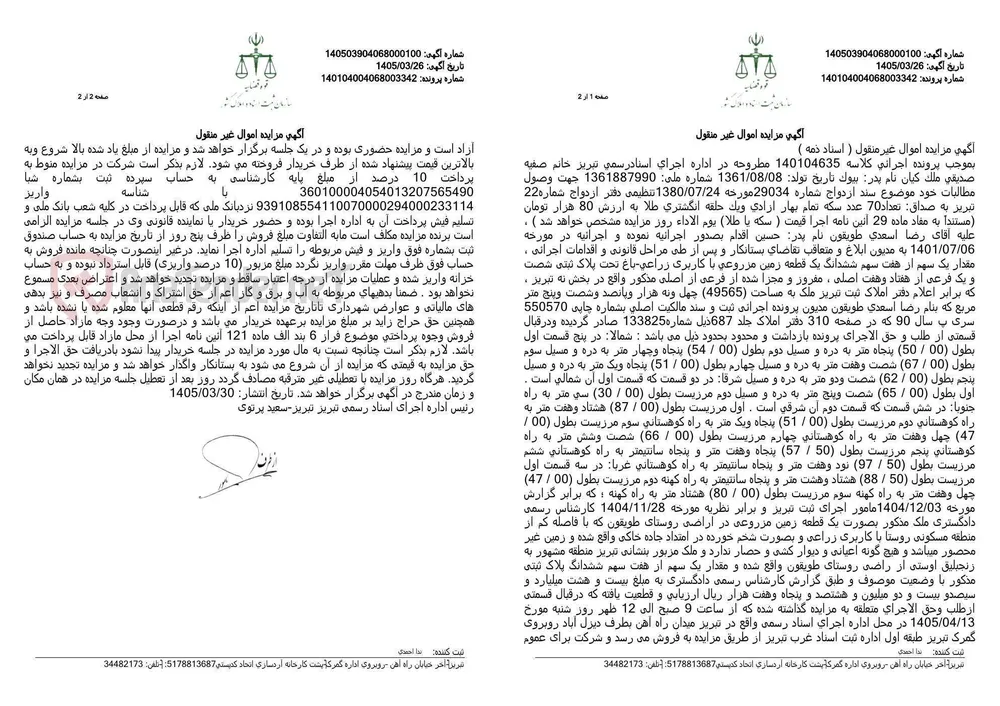 شماره آگهي: 140503904068000100
تاریخ آگهي: 1405/03/26
شماره پرونده: 140104004068003342
قوه قضاییه
سازمان ثبت اسناد و املاک کشور
صفحه 1 از 2
آگهي مزایده اموال غیر منقول
آگهي مزایده اموال غیرمنقول ( اسناد ذمه )
بموجب پرونده اجرائي کلاسه 140104635 مطروحه در اداره اجراي اسنادرسمي تبریز خانم صفیه
صدیقي ملك کیان نام پدر: بیوك تاریخ تولد: 1361/08/08 شماره ملي: 1361887990 جهت وصول
مطالبات خود موضوع سند ازدواج شماره 29034مورخه 1380/07/24تنظیمي دفتر ازدواج شماره22
تبریز به صداق: تعداد70 عدد سکه تمام بهار ازادي ویك حلقه انگشتري طلا به ارزش 80 هزار تومان
(مستنداً به مفاد ماده 29 آئین نامه اجرا قیمت ( سکه یا طلا) یوم الاداء روز مزایده مشخص خواهد شد ) ،
علیه آقاي رضا اسعدي طویقون نام پدر: حسین اقدام بصدور اجرائیه نموده و اجرائیه در مورخه
1401/07/06 به مدیون ابلاغ و متعاقب تقاضاي بستانکار و پس از طي مراحل قانوني و اقدامات اجرائي ،
مقدار یک سهم از هفت سهم ششدانگ یک قطعه زمین مزروعي با کاربري زراعي-باغ تحت پلاک ثبتي شصت
و یک فرعي از هفتاد وهفت اصلي ، مفروز و مجزا شده از فرعي از اصلي مذکور واقع در بخش نه تبریز ،
که برابر اعلام دفتر املاک ثبت تبریز ملك به مساحت (49565) چهل ونه هزار وپانصد وشصت وپنج متر
مربع که بنام رضا اسعدي طویقون مدیون پرونده اجرائي ثبت و سند مالکیت اصلي بشماره چاپي 550570
سري پ سال 90 که در صفحه 310 دفتر املاک جلد 687ذیل شماره133825 صادر گردیده ودرقبال
قسمتي از طلب و حق الاجراي پرونده بازداشت و محدود بحدود ذیل مي باشد : شمالا: در پنج قسمت اول
بطول (00 / 50) پنجاه متر به دره و مسیل دوم بطول (00 / 54) پنجاه وچهار متر به دره و مسیل سوم
بطول (00 / 67) شصت وهفت متر به دره و مسیل چهارم بطول (00 / 51) پنجاه ویک متر به دره و مسیل
پنجم بطول (00 / 62) شصت ودو متر به دره و مسیل شرقا: در دو قسمت که قسمت اول آن شمالي است .
اول بطول (00 / 65) شصت وپنج متر به دره و مسیل دوم مرزیست بطول (00 / 30) سي متر به راه
جنوبا: در شش قسمت که قسمت دوم آن شرقي است . اول مرزیست بطول (00 / 87) هشتاد وهفت متر به
راه کوهستاني دوم مرزیست بطول (00 / 51) پنجاه ویک متر به راه کوهستاني سوم مرزیست بطول (00 /
47) چهل وهفت متر به راه کوهستاني چهارم مرزیست بطول (00 / 66) شصت وشش متر به راه
کوهستاني پنجم مرزیست بطول (50 / 57) پنجاه وهفت متر و پنجاه سانتیمتر به راه کوهستاني ششم
مرزیست بطول (50 / 97) نود وهفت متر و پنجاه سانتیمتر به راه کوهستاني غربا: در سه قسمت اول
مرزیست بطول (50 / 88) هشتاد وهشت متر و پنجاه سانتیمتر به راه کهنه دوم مرزیست بطول (00 / 47)
چهل وهفت متر به راه کهنه سوم مرزیست بطول (00 / 80) هشتاد متر به راه کهنه ؛ که برابر گزارش
مورخه 1404/12/03مامور اجراي ثبت تبریز و برابر نظریه مورخه 1404/11/28 کارشناس رسمي
دادگستري ملك مذکور بصورت یک قطعه زمین مزروعي در اراضي روستاي طویقون که با فاصله کم از
منطقه مسکوني روستا با کاربري زراعي و بصورت شخم خورده در امتداد جاده خاکي واقع شده و زمین غیر
محصور میباشد و هیچ گونه اعیاني و دیوار کشي و حصار ندارد و ملک مزبور بنشاني تبریز منطقه مشهور به
زنجبلیق اوستی از راضي روستاي طویقون واقع شده و مقدار یک سهم از هفت سهم ششدانگ پلاک ثبتي
مذکور با وضعیت موصوف و طبق گزارش کارشناس رسمي دادگستري به مبلغ بیست و هشت میلیارد و
سیصدو بیست و دو میلیون و هشتصد و پنجاه وهفت هزار ریال ارزیابي و قطعیت یافته که درقبال قسمتي
ازطلب وحق الاجراي متعلقه به مزایده گذاشته شده که از ساعت 9 صبح الي 12 ظهر روز شنبه مورخ
1405/04/13 در محل اداره اجراي اسناد رسمي واقع در تبریز میدان راه آهن بطرف دیزل آباد روبروي
گمرک تبریز طبقه اول اداره ثبت اسناد غرب تبریز از طریق مزایده به فروش مي رسد و شرکت براي عموم
ثبت کننده: ندا احمدي
تبریز-آخر خیابان راه آهن -روبروي اداره گمرک-پشت کارخانه آردسازي اتحاد کدپستي:5178813687 -تلفن: 34482173
شماره آگهي: 140503904068000100
تاریخ آگهي: 1405/03/26
شماره پرونده: 140104004068003342
قوه قضاییه
سازمان ثبت اسناد و املاک کشور
صفحه 2 از 2
آگهي مزایده اموال غیر منقول
آزاد است و مزایده حضوري بوده و در یک جلسه برگزار خواهد شد و مزایده از مبلغ یاد شده بالا شروع وبه
بالاترین قیمت پیشنهاد شده از طرف خریدار فروخته مي شود. لازم بذکر است شرکت در مزایده منوط به
پرداخت 10 درصد از مبلغ پایه کارشناسي به حساب سپرده ثبت بشماره شبا
360100004054013207565490 با شناسه واریز
939108554110070000294000233114 نزدبانک ملي که قابل پرداخت در کلیه شعب بانک ملي و
تسلیم فیش پرداخت آن به اداره اجرا بوده و حضور خریدار یا نماینده قانوني وي در جلسه مزایده الزامي
است برنده مزایده مکلف است مابه التفاوت مبلغ فروش را ظرف پنج روز از تاریخ مزایده به حساب صندوق
ثبت بشماره فوق واریز و فیش مربوطه را تسلیم اداره اجرا نماید. درغیر اینصورت چنانچه مانده فروش به
حساب فوق ظرف مهلت مقرر واریز نگردد مبلغ مزبور (10 درصد واریزي) قابل استرداد نبوده و به حساب
خزانه واریز شده و عملیات مزایده از درجه اعتبار ساقط و مزایده تجدید خواهد شد و اعتراض بعدي مسموع
نخواهد بود . ضمنا بدهیهاي مربوطه به آب و برق و گاز اعم از حق اشتراک و انشعاب مصرف و نیز بدهي
هاي مالیاتي و عوارض شهرداري تاتاریخ مزایده اعم از اینکه رقم قطعي آنها معلوم شده یا نشده باشد و
همچنین حق حراج زاید بر مبلغ مزایده برعهده خریدار مي باشد و درصورت وجود وجه مازاد حاصل از
فروش وجوه پرداختي موضوع فراز 6 بند الف ماده 121 آئین نامه اجرا از محل مازاد قابل پرداخت مي
باشد. لازم بذکر است چنانچه نسبت به مال مورد مزایده در جلسه خریدار پیدا نشود بادریافت حق الاجرا و
حق مزایده به قیمتي که مزایده از آن شروع مي شود به بستانکار واگذار خواهد شد و مزایده تجدید نخواهد
گردید. هرگاه روز مزایده با تعطیلي غیر مترقبه مصادف گردد روز بعد از تعطیل جلسه مزایده در همان مکان
و زمان مندرج در آگهي برگزار خواهد شد. تاریخ انتشار: 1405/03/30
رئیس اداره اجراي اسناد رسمي تبریز تبریز-سعید پرتوي
ثبت کننده: ندا احمدي
تبریز-آخر خیابان راه آهن -روبروي اداره گمرک-پشت کارخانه آردسازي اتحاد کدپستي:5178813687 -تلفن: 34482173